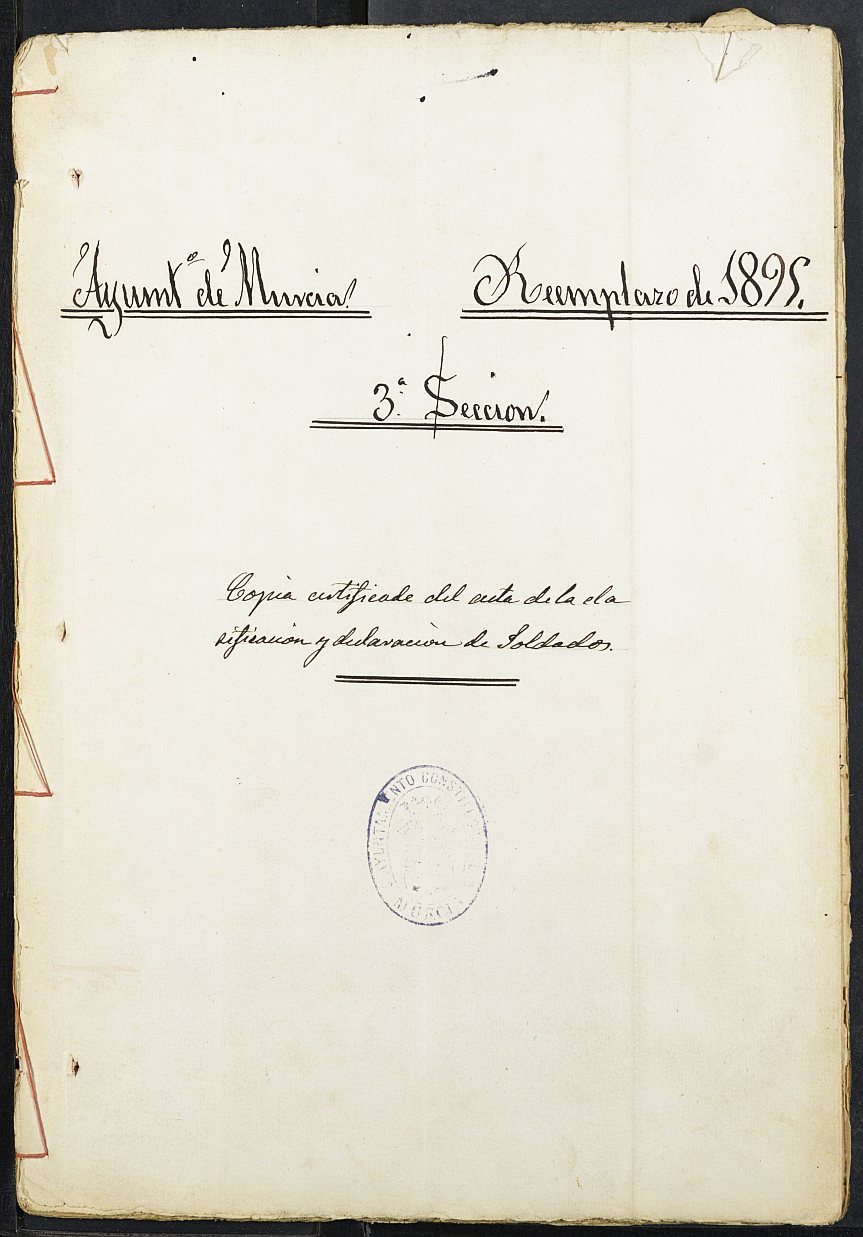 Ayumt.º de Murcia.
Reemplazo de 1895.
3.ª Seccion.
Copia certificada del acta de la cla
sificación y declaración de Soldados.
AYUNTAMIENTO CONSTI
MURCIA